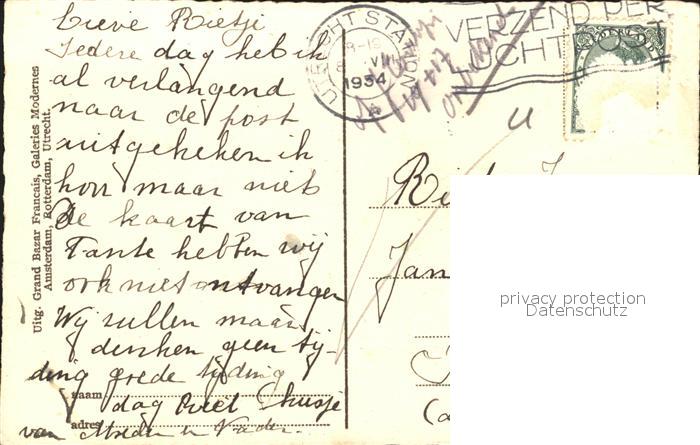 Lieve Rietji
Iedere dag heb ik
al verlangend
naar de post
uitgekeken ik
hou maar niet
De kaart van
Tante hebben wij
ook niet ontvangen
Wij zullen maar
denken geen tij-
ding goede tijding
dag Riet
van Moeder en Vader.
naam
adres
Uitg. Grand Bazar Francais, Galeries Modernes
Amsterdam, Rotterdam, Utrecht.
UTRECHT STATION
VIII
1934
VERZEND PER
LUCHTPOST
NEDERLAND
Jan
privacy protection
Datenschutz